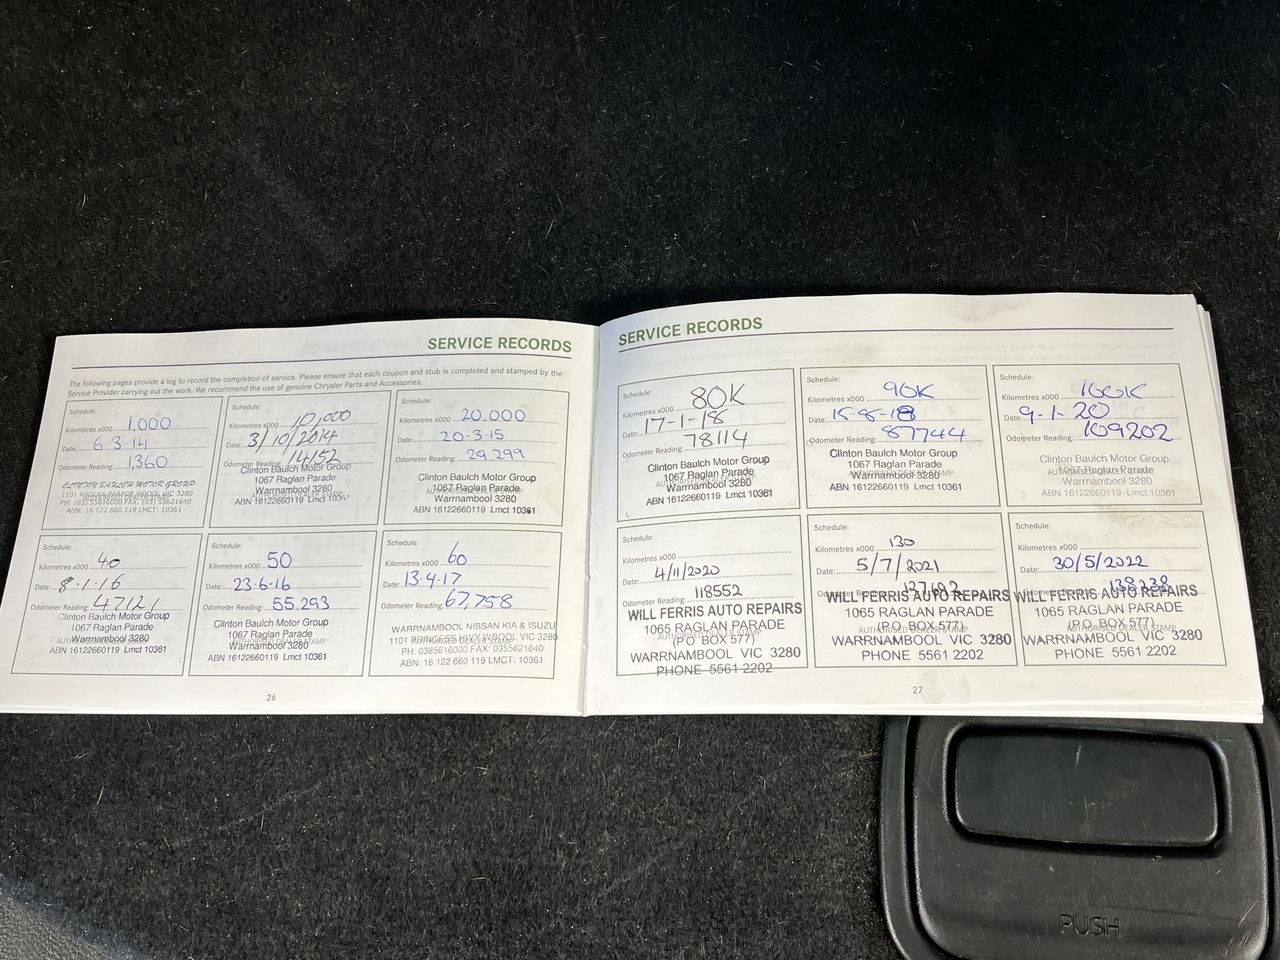 SERVICE RECORDS
The following pages provide a log to record the completion of service. Please ensure that each coupon and stub is completed and stamped by the
Service Provider carrying out the work. We recommend the use of genuine Chrysler Parts and Accessories.
Schedule:
Kilometres x000 1.000
Date: 6.3.14
Odometer Reading: 1,360
CLINTON BAULCH MOTOR GROUP
1101 RAGLAN PARADE W'BOOL VIC 3280
PH: (03) 55616000 FAX: (03) 55621640
ABN: 16 122 660 119 LMCT: 10361
Schedule:
Kilometres x000 10,000
Date: 3/10/2014
Odometer Reading: 14152
Clinton Baulch Motor Group
1067 Raglan Parade
Warrnambool 3280
AUTHORISED DEALER STAMP
ABN 16122660119 Lmct 10361
Schedule:
Kilometres x000 20.000
Date: 20.3.15
Odometer Reading: 29.299
Clinton Baulch Motor Group
1067 Raglan Parade
AUTHORISED DEALER STAMP
Warrnambool 3280
ABN 16122660119 Lmct 10361
Schedule:
Kilometres x000 40
Date: 8.1.16
Odometer Reading: 47121
Clinton Baulch Motor Group
1067 Raglan Parade
Warrnambool 3280
AUTHORISED DEALER STAMP
ABN 16122660119 Lmct 10361
Schedule:
Kilometres x000 50
Date: 23.6.16
Odometer Reading: 55.293
Clinton Baulch Motor Group
1067 Raglan Parade
AUTHORISED DEALER STAMP
Warrnambool 3280
ABN 16122660119 Lmct 10361
Schedule:
Kilometres x000 60
Date: 13.4.17
Odometer Reading: 67,758
WARRNAMBOOL NISSAN KIA & ISUZU
1101 PRINCESS HWY W'BOOL VIC 3280
AUTHORISED DEALER STAMP
PH: 0385616000 FAX: 0355621640
ABN: 16 122 660 119 LMCT: 10361
26
SERVICE RECORDS
Schedule: 80K
Kilometres x000
Date: 17-1-18
Odometer Reading: 78114
Clinton Baulch Motor Group
1067 Raglan Parade
AUTHORISED DEALER STAMP
Warrnambool 3280
ABN 16122660119 Lmct 10361
Schedule:
Kilometres x000 90K
Date: 15-8-18
Odometer Reading: 87744
Clinton Baulch Motor Group
1067 Raglan Parade
AUTHORISED DEALER STAMP
Warrnambool 3280
ABN 16122660119 Lmct 10361
Schedule:
Kilometres x000 100K
Date: 9-1-20
Odometer Reading: 109202
Clinton Baulch Motor Group
1067 Raglan Parade
AUTHORISED DEALER STAMP
Warrnambool 3280
ABN 16122660119 Lmct 10361
Schedule:
Kilometres x000
Date: 4/11/2020
Odometer Reading: 118552
WILL FERRIS AUTO REPAIRS
1065 RAGLAN PARADE
AUTHORISED DEALER STAMP
(P.O. BOX 577)
WARRNAMBOOL VIC 3280
PHONE 5561 2202
Schedule:
Kilometres x000 130
Date: 5/7/2021
Odometer Reading:
WILL FERRIS AUTO REPAIRS
1065 RAGLAN PARADE
(P.O. BOX 577)
AUTHORISED DEALER STAMP
WARRNAMBOOL VIC 3280
PHONE 5561 2202
Schedule:
Kilometres x000
Date: 30/5/2022
Odometer Reading: 138238
WILL FERRIS AUTO REPAIRS
1065 RAGLAN PARADE
(P.O. BOX 577)
AUTHORISED DEALER STAMP
WARRNAMBOOL VIC 3280
PHONE 5561 2202
27
PUSH